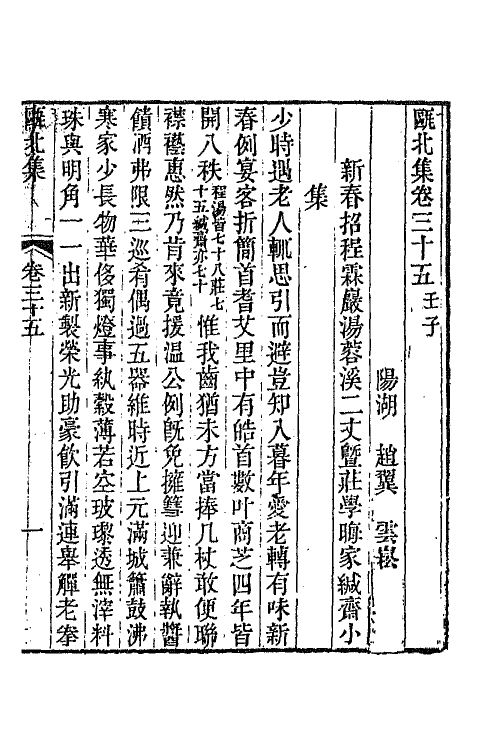 甌北集卷三十五 壬子
陽湖 趙翼 雲崧
新春招程霖巖湯蓉溪二丈曁莊學晦家緘齋小
集
少時遇老人輒思引而避豈知入暮年愛老轉有味新
春例宴客折簡首耆艾里中有皓首數叶商芝四年皆
開八秩程湯皆七十八莊七十五緘齋亦七十惟我齒猶未方當捧几杖敢便聯
襟襼惠然乃肯來竟援溫公例旣免擁篲迎兼辭執醬
饋酒弗限三巡肴偶過五器維時近上元滿城簫鼓沸
寒家少長物華侈獨燈事紈縠薄若空玻瓈透無滓料
珠與明角一一出新製榮光助豪飮引滿連舉觶老拳
甌北集
卷三十五
一